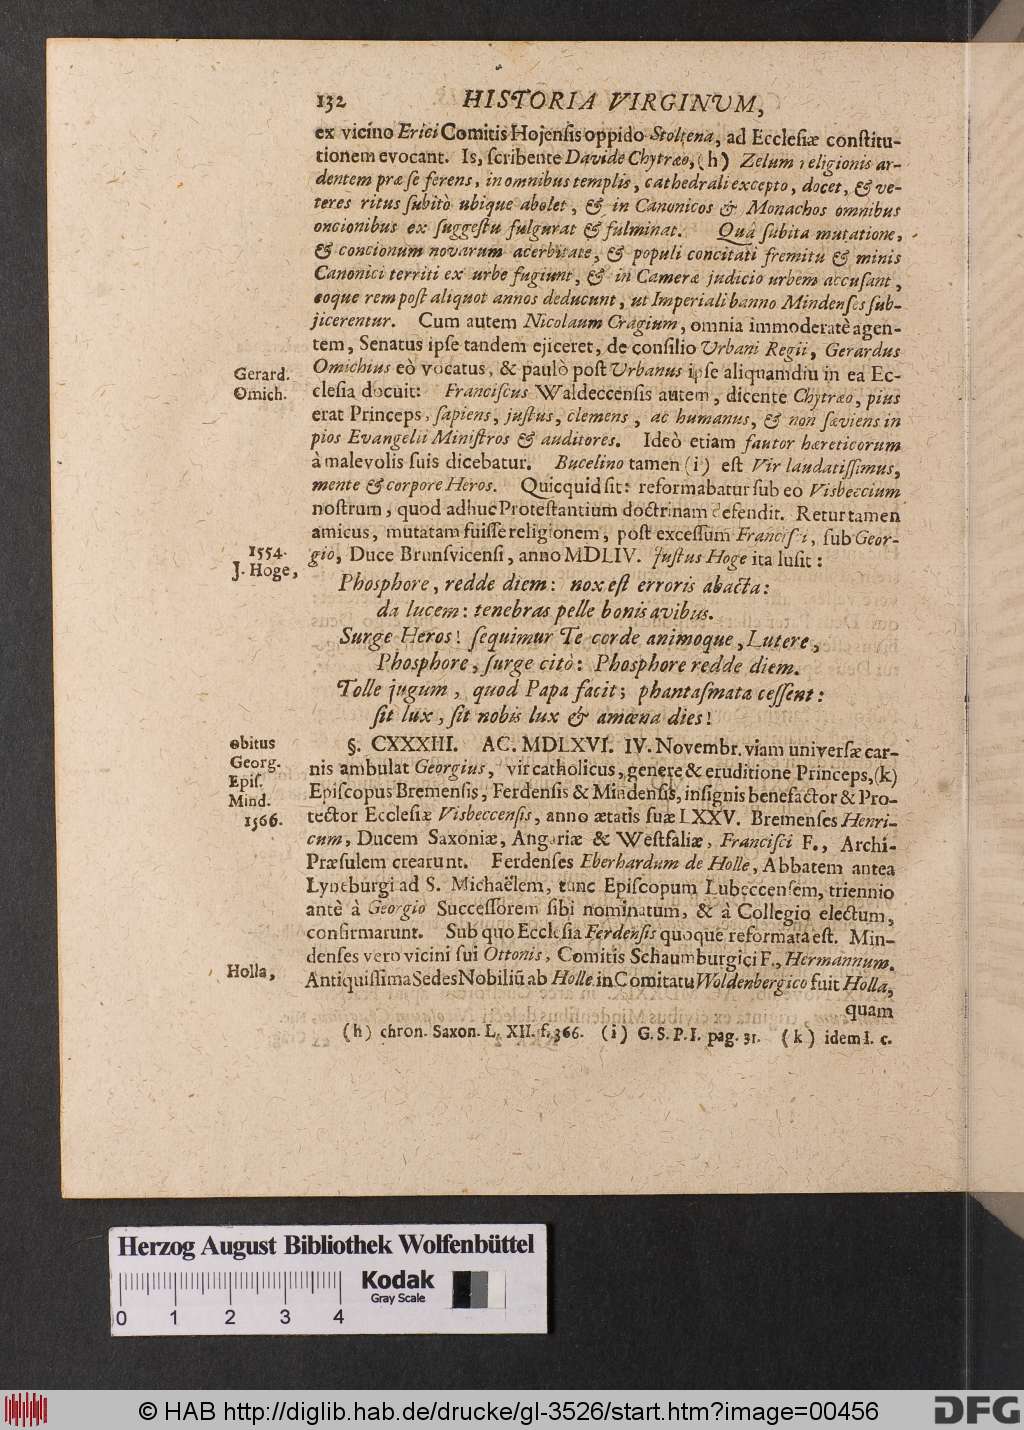 132 HISTORIA VIRGINUM,
ex vicino Erici Comitis Hojensis oppido Stoltena, ad Ecclesiæ constitu-
tionem evocant. Is, scribente Davide Chytræo, (h) Zelum religionis ar-
dentem præ se ferens, in omnibus templis, cathedrali excepto, docet, & ve-
teres ritus subitò ubique abolet, & in Canonicos & Monachos omnibus
oncionibus ex suggestu fulgurat & fulminat. Quâ subita mutatione,
& concionum novarum acerbitate, & populi concitati fremitu & minis
Canonici territi ex urbe fugiunt, & in Cameræ judicio urbem accusant,
eoque rem post aliquot annos deducunt, ut Imperiali banno Mindenses sub-
jicerentur. Cum autem Nicolaum Cragium, omnia immoderatè agen-
tem, Senatus ipse tandem ejiceret, de consilio Urbani Regii, Gerardus
Omichius eò vocatus, & paulò post Urbanus ipse aliquamdiu in ea Ec-
Gerard.
Omich.
clesia docuit: Franciscus Waldeccensis autem, dicente Chytræo, pius
erat Princeps, sapiens, justus, clemens, ac humanus, & non sæviens in
pios Evangelii Ministros & auditores. Ideò etiam fautor hæreticorum
à malevolis suis dicebatur. Bucelino tamen (i) est Vir laudatissimus,
mente & corpore Heros. Quicquid sit: reformabatur sub eo Visbeccium
nostrum, quod adhuc Protestantium doctrinam defendit. Retur tamen
amicus, mutatam fuisse religionem, post excessum Francisci, sub Geor-
1554.
J. Hoge,
gio, Duce Brunsvicensi, anno MDLIV. Justus Hoge ita lusit:
Phosphore, redde diem: nox est erroris abacta:
da lucem: tenebras pelle bonis avibus.
Surge Heros! sequimur Te corde animoque, Lutere,
Phosphore, surge citò: Phosphore redde diem.
Tolle jugum, quod Papa facit; phantasmata cessent:
sit lux, sit nobis lux & amœna dies!
obitus
Georg.
Epis.
Mind.
1566.
§. CXXXIII. AC. MDLXVI. IV. Novembr. viam universæ car-
nis ambulat Georgius, vir catholicus, genere & eruditione Princeps, (k)
Episcopus Bremensis, Ferdensis & Mindensis, insignis benefactor & Pro-
tector Ecclesiæ Visbeccensis, anno ætatis suæ LXXV. Bremenses Henri-
cum, Ducem Saxoniæ, Angariæ & Westfaliæ, Francisci F., Archi-
Præsulem crearunt. Ferdenses Eberhardum de Holle, Abbatem antea
Lyneburgi ad S. Michaëlem, tunc Episcopum Lubeccensem, triennio
antè à Georgio Successorem sibi nominatum, & à Collegio electum,
confirmarunt. Sub quo Ecclesia Ferdensis quoque reformata est. Min-
denses vero vicini sui Ottonis, Comitis Schaumburgici F., Hermannum.
Holla,
Antiquissima Sedes Nobiliũ ab Holle in Comitatu Woldenbergico fuit Holla,
quam
(h) chron. Saxon. L. XII. f. 366. (i) G. S. P. I. pag. 31. (k) idem l. c.
Herzog August Bibliothek Wolfenbüttel
Kodak
Gray Scale
0 1 2 3 4
© HAB http://diglib.hab.de/drucke/gl-3526/start.htm?image=00456
DFG